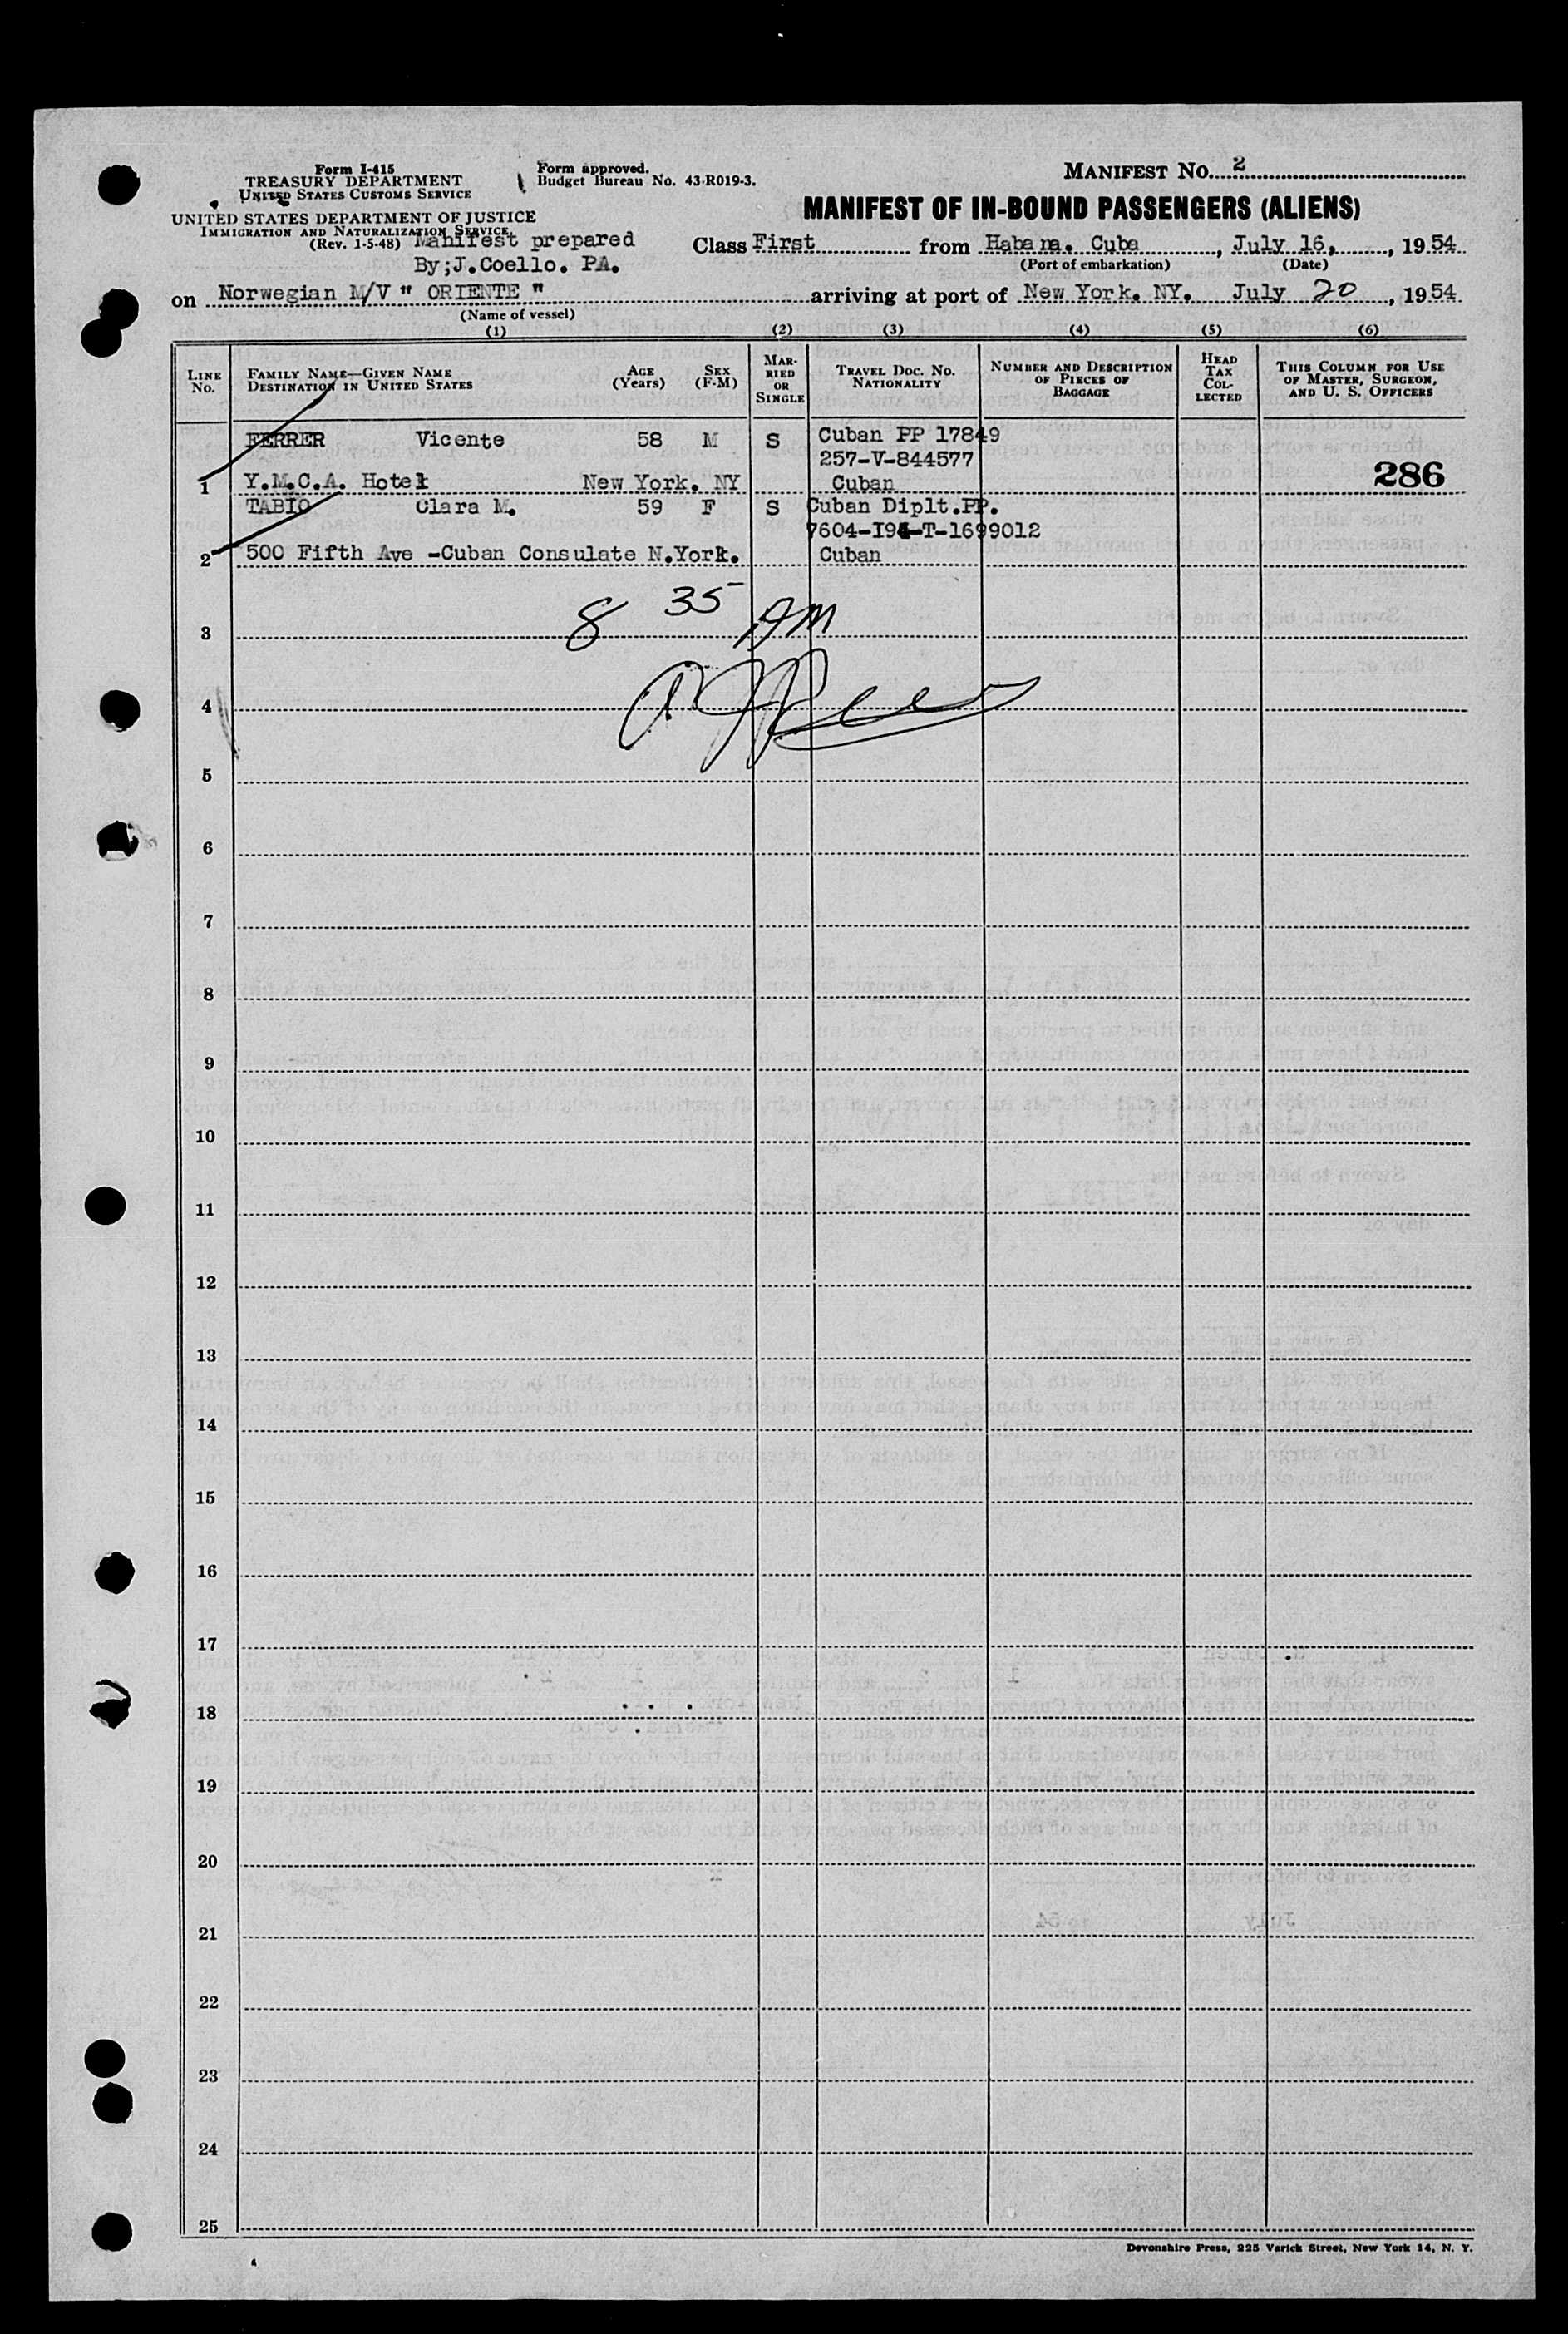 Form I-415
TREASURY DEPARTMENT
UNITED STATES CUSTOMS SERVICE
UNITED STATES DEPARTMENT OF JUSTICE
IMMIGRATION AND NATURALIZATION SERVICE
(Rev. 1-5-48) Manifest prepared
By;J.Coello. PA.
Form approved.
Budget Bureau No. 43-R019-3.
MANIFEST NO. 2
MANIFEST OF IN-BOUND PASSENGERS (ALIENS)
Class First from Habana. Cuba, July 16, 1954
(Port of embarkation) (Date)
on Norwegian M/V " ORIENTE " arriving at port of New York. NY. July 20, 1954
(Name of vessel)
(1) (2) (3) (4) (5) (6)
LINE NO.
FAMILY NAME—GIVEN NAME
DESTINATION IN UNITED STATES
AGE (Years)
SEX (F-M)
MARRIED OR SINGLE
TRAVEL DOC. NO.
NATIONALITY
NUMBER AND DESCRIPTION OF PIECES OF BAGGAGE
HEAD TAX COLLECTED
THIS COLUMN FOR USE OF MASTER, SURGEON, AND U. S. OFFICERS
FERRER Vicente 58 M S Cuban PP 17849
257-V-844577
1 Y.M.C.A. Hotel New York. NY Cuban 286
TABIO Clara M. 59 F S Cuban Diplt.PP.
7604-I94-T-1699012
2 500 Fifth Ave -Cuban Consulate N.York. Cuban
8 35 AM
3
4
5
6
7
8
9
10
11
12
13
14
15
16
17
18
19
20
21
22
23
24
25
Devonshire Press, 225 Varick Street, New York 14, N. Y.